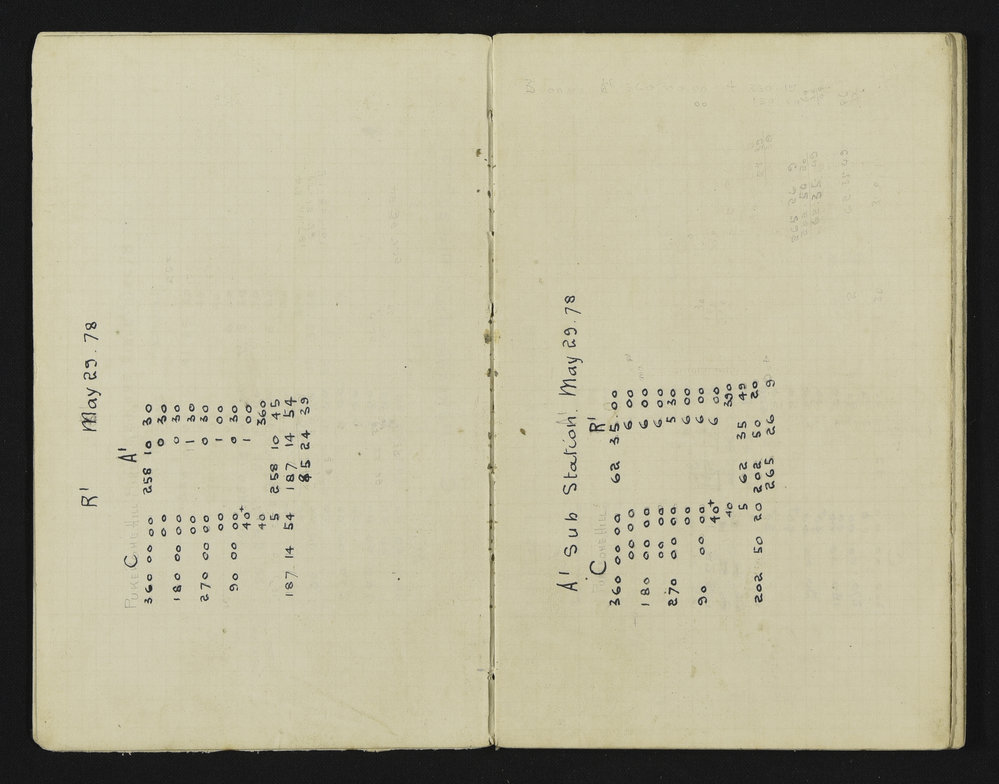 R' May 29. 78
C A'
360 00 00 258 10 30
00 00 0 30
180 00 00 0 30
00 00 1 30
270 00 00 0 30
00 1 00
90 00 00 0 30
40+ 1 00
40 360
5 258 10 45
187 14 54 187 14 54
85 24 39
A' Sub Station. May 29. 78
C R'
360 00 00 62 35 00
00 00 6 00
180 00 00 6 00
00 00 6 00
270 00 00 5 30
00 6 00
90 00 00 6 00
40+ 6 00
40 390
5 62 35 49
202 50 20 202 50 20
265 26 9